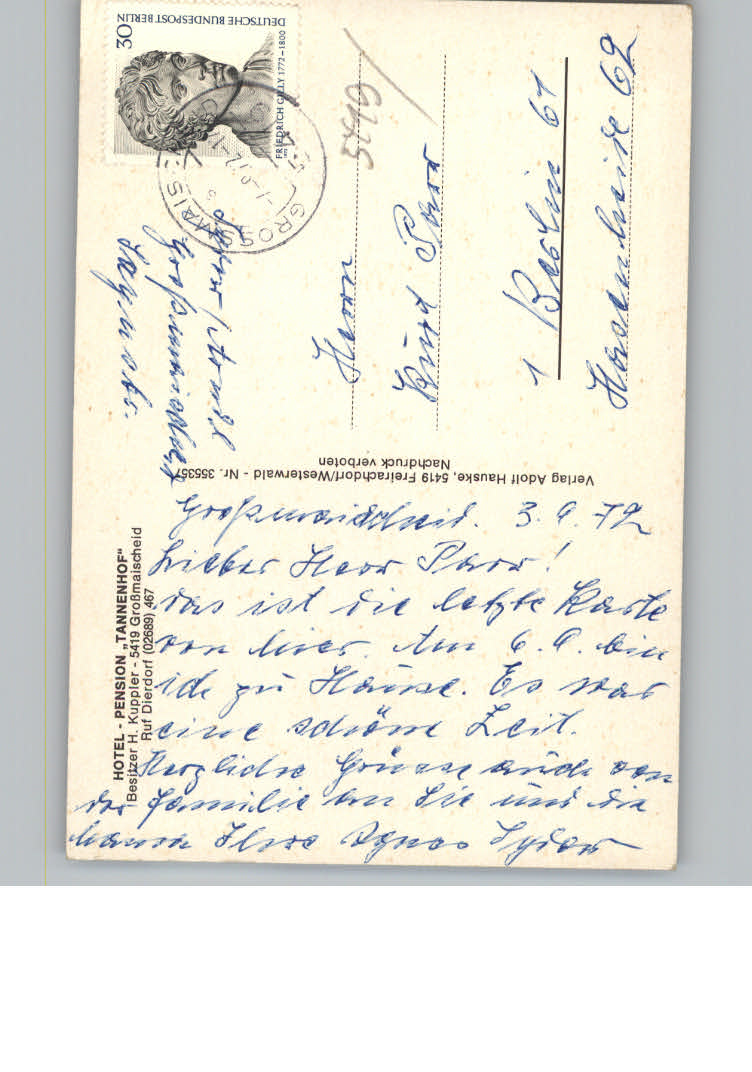 HOTEL - PENSION „TANNENHOF"
Besitzer H. Kuppler - 5419 Großmaischeid
Ruf Dierdorf (02689) 467
Großmaischeid. 3. 9. 72
Lieber Herr Parr!
das ist die letzte Karte
von hier. Am 6. 9. bin
ich zu Hause. Es war
eine schöne Zeit.
Herzliche Grüsse auch von
der Familie an Sie und die
Mama Ihre Agnes Sydow
Verlag Adolf Hauske, 5419 Freirachdorf/Westerwald - Nr. 355357
Nachdruck verboten
DEUTSCHE BUNDESPOST BERLIN
30
FRIEDRICH GILLY 1772–1800
1972
GROSSMAISC
5419
Herrn
Kurt Parr
1 Berlin 61
Hasenheide 62